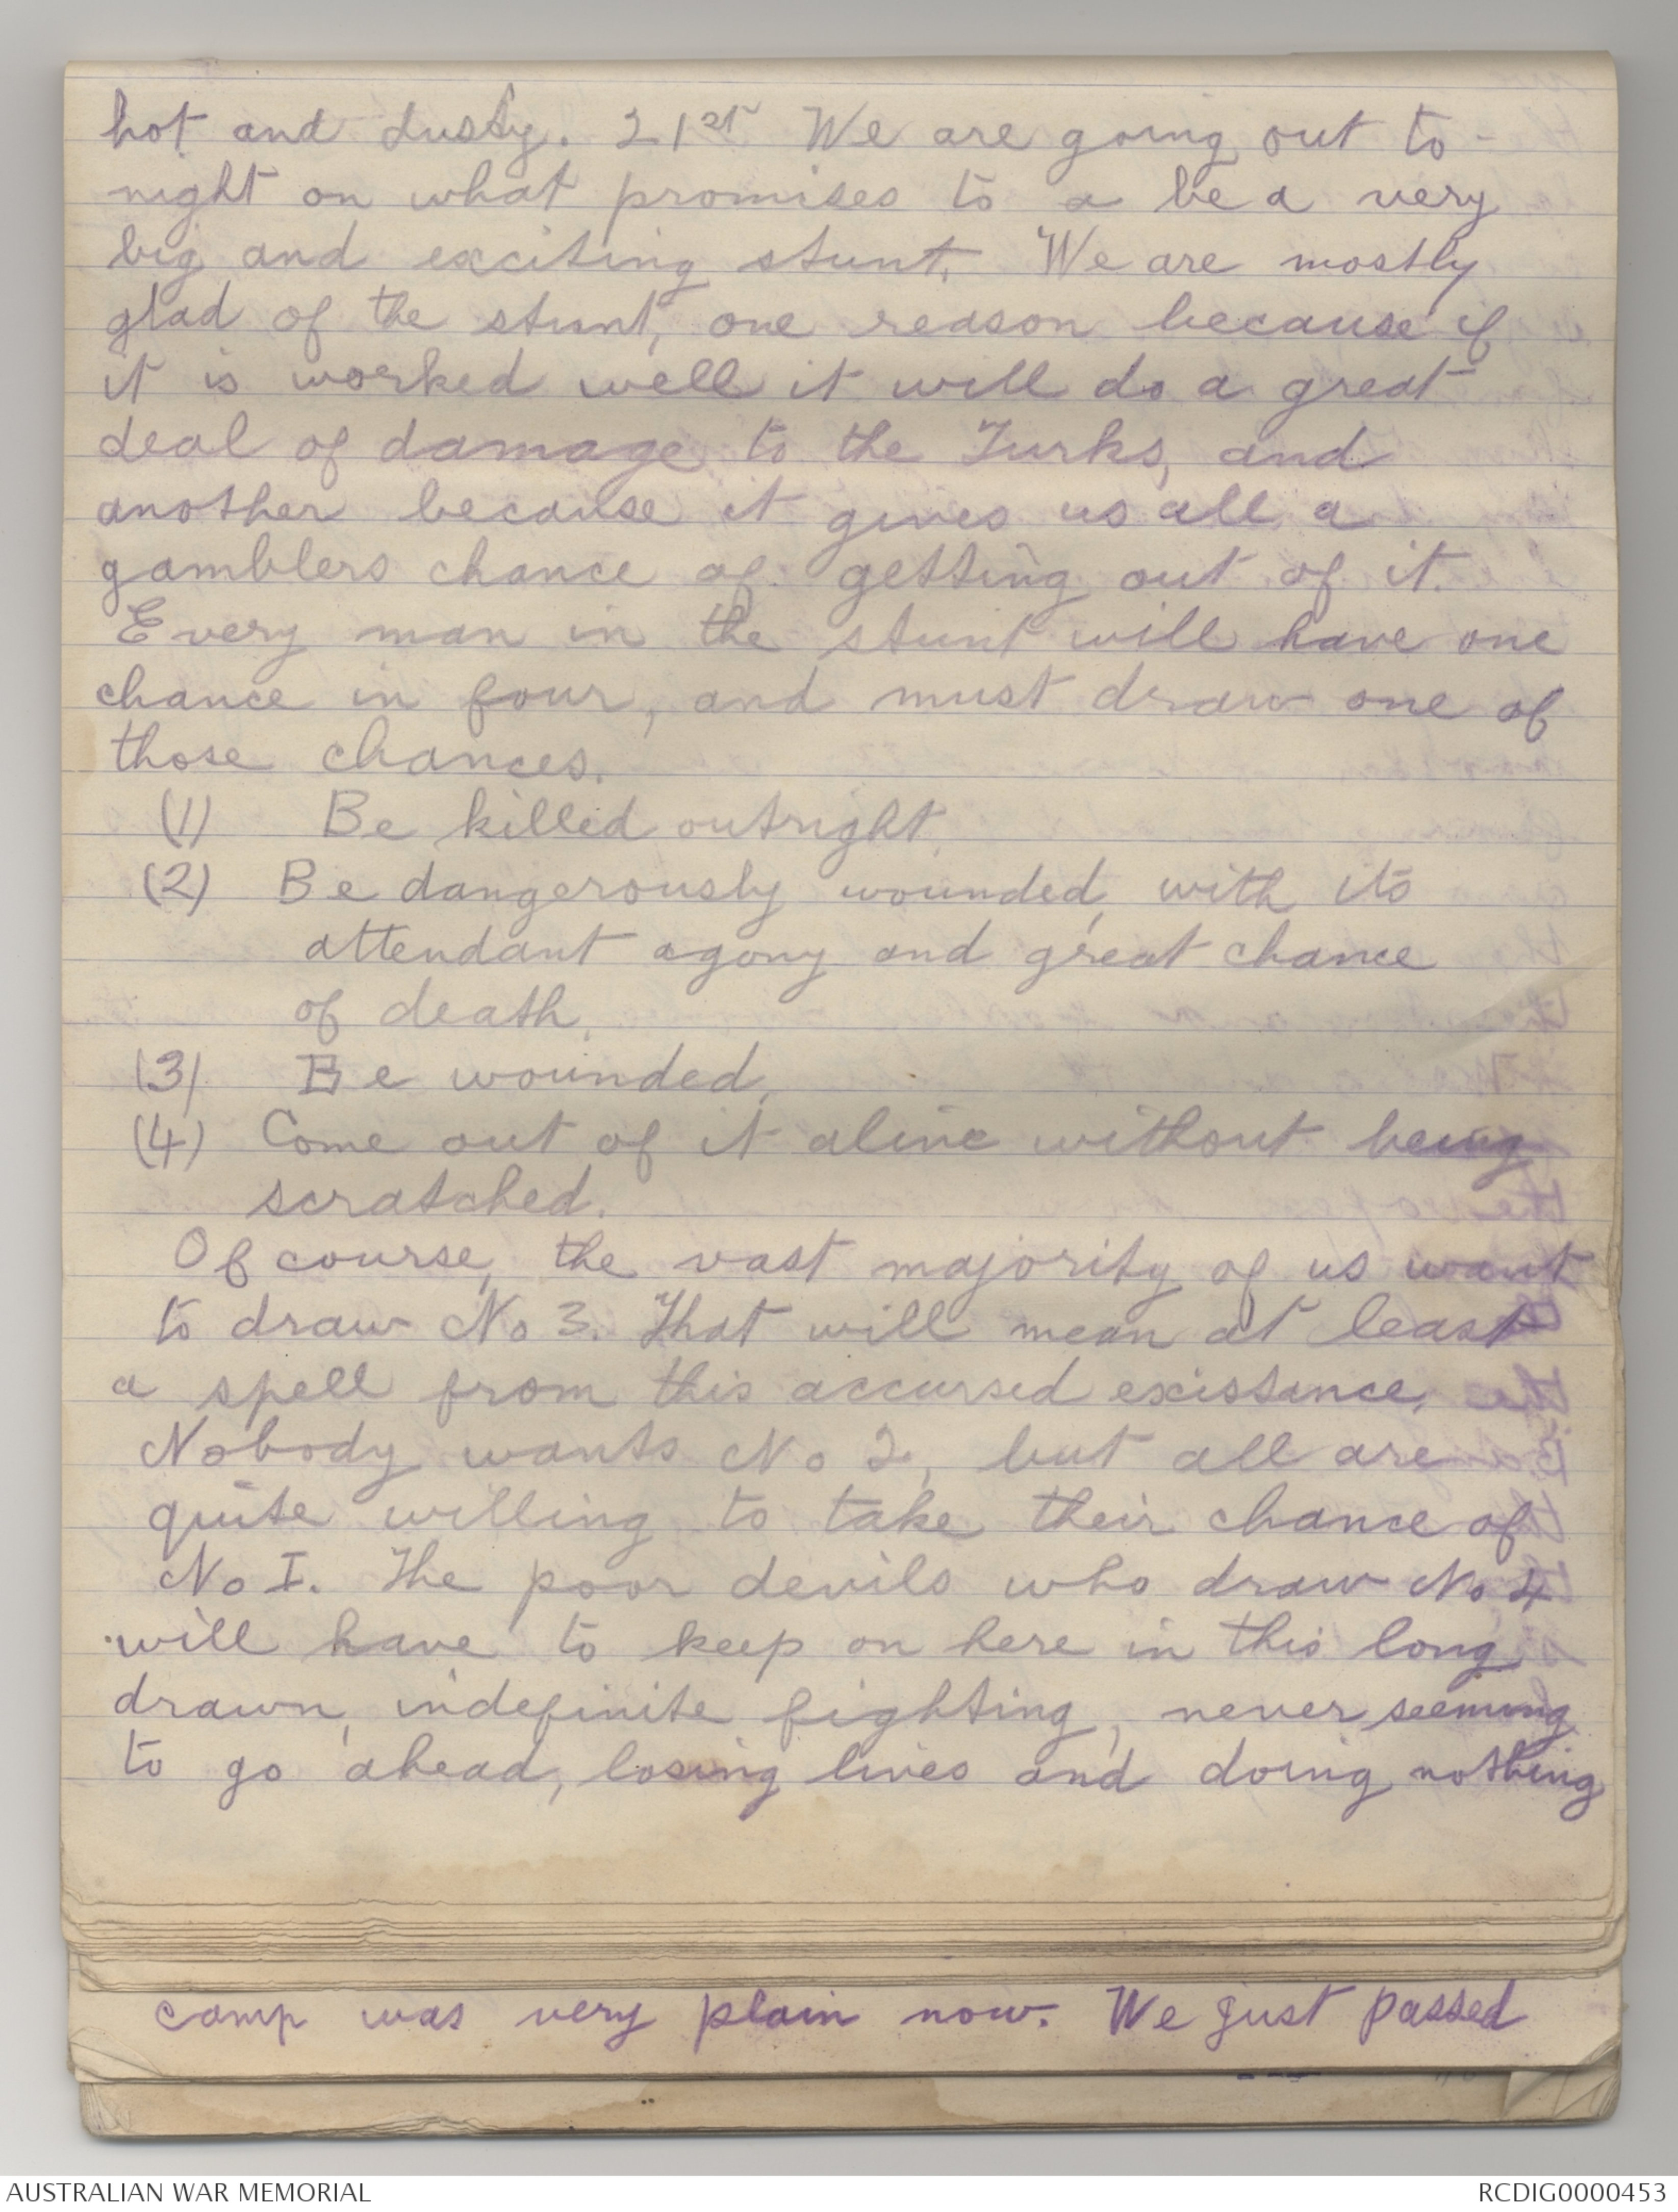 hot and dusty. 21st We are going out to-
night on what promises to a be a very
big and exciting stunt. We are mostly
glad of the stunt, one reason because if
it is worked well it will do a great
deal of damage to the Turks, and
another because it gives us all a
gamblers chance of getting out of it.
Every man in the stunt will have one
chance in four, and must draw one of
those chances.
(1) Be killed outright.
(2) Be dangerously wounded, with its
attendant agony and great chance
of death.
(3) Be wounded.
(4) Come out of it alive without being
scratched.
Of course, the vast majority of us want
to draw No 3. That will mean at least
a spell from this accursed existance.
Nobody wants No 2, but all are
quite willing to take their chance of
No I. The poor devils who draw No 4
will have to keep on here in this long
drawn, indefinite fighting, never seeming
to go ahead, losing lives and doing nothing
camp was very plain now. We just passed
AUSTRALIAN WAR MEMORIAL
RCDIG0000453